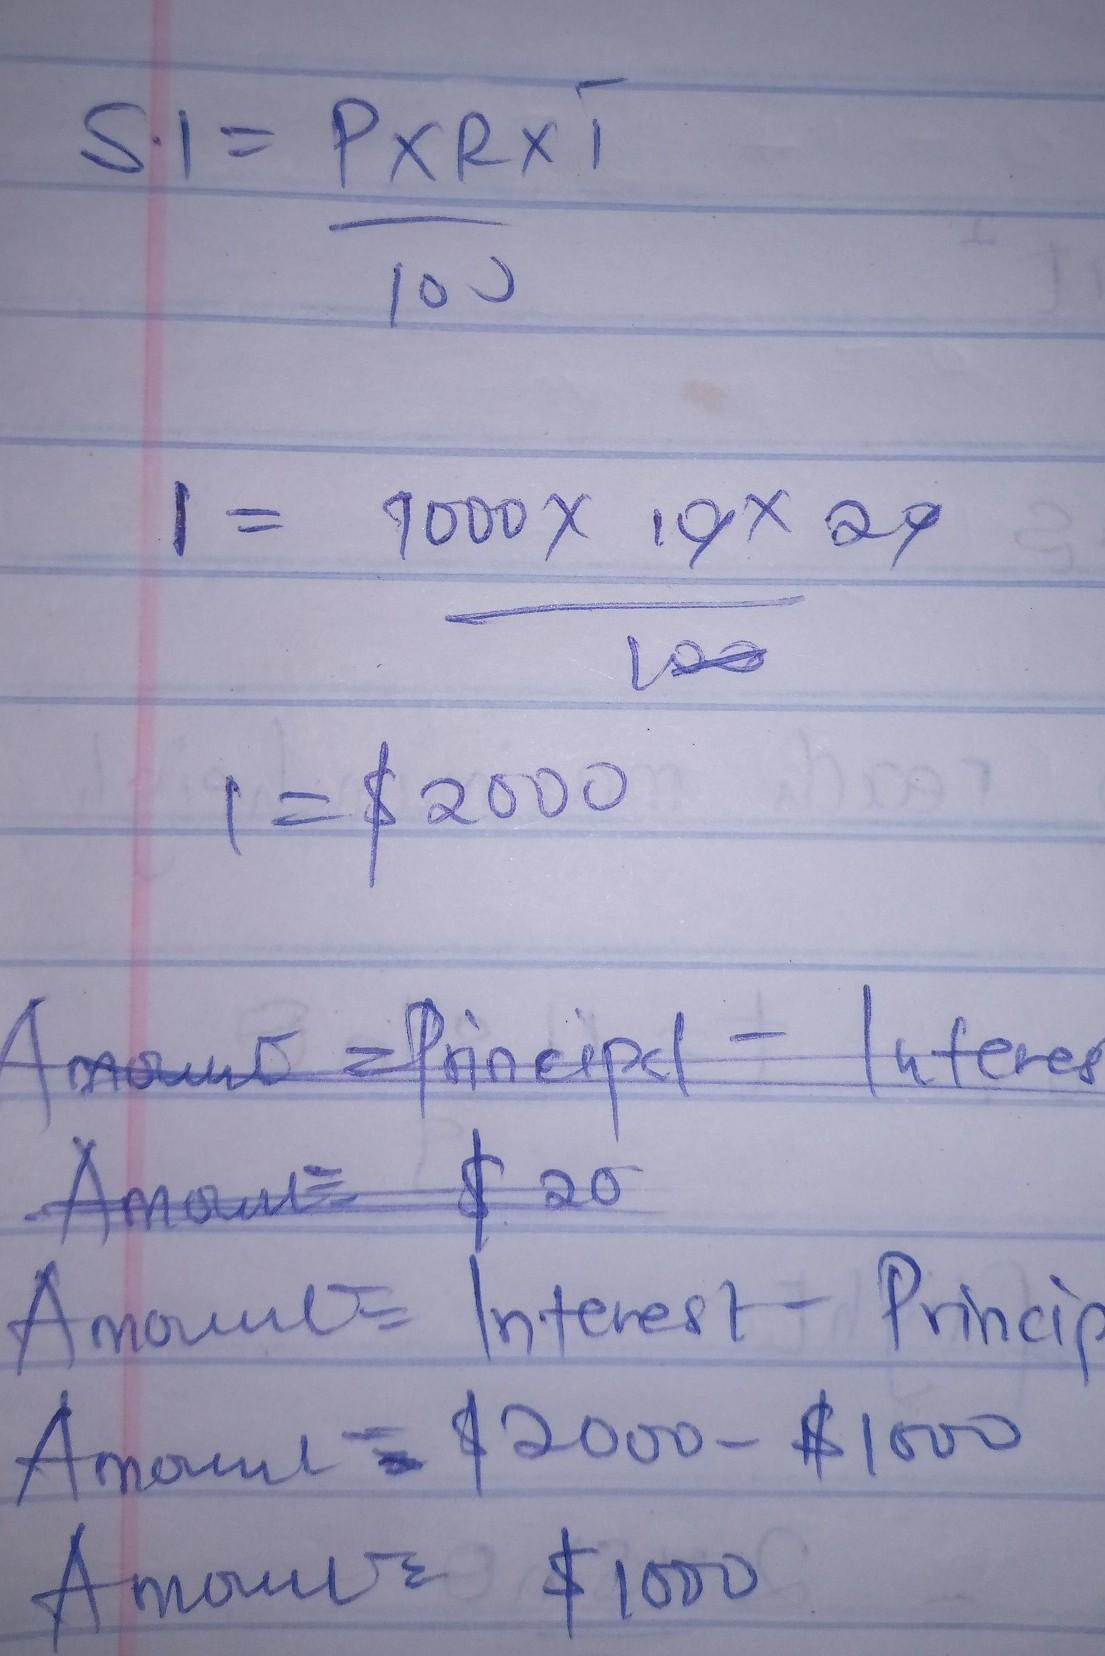 S.I = P x R x T
100
I = 1000 x 10 x 20
100
I = $2000
Amount = Principal - Interes
Amount = $20
Amount = Interest - Princip
Amount = $2000 - $1000
Amount = $1000